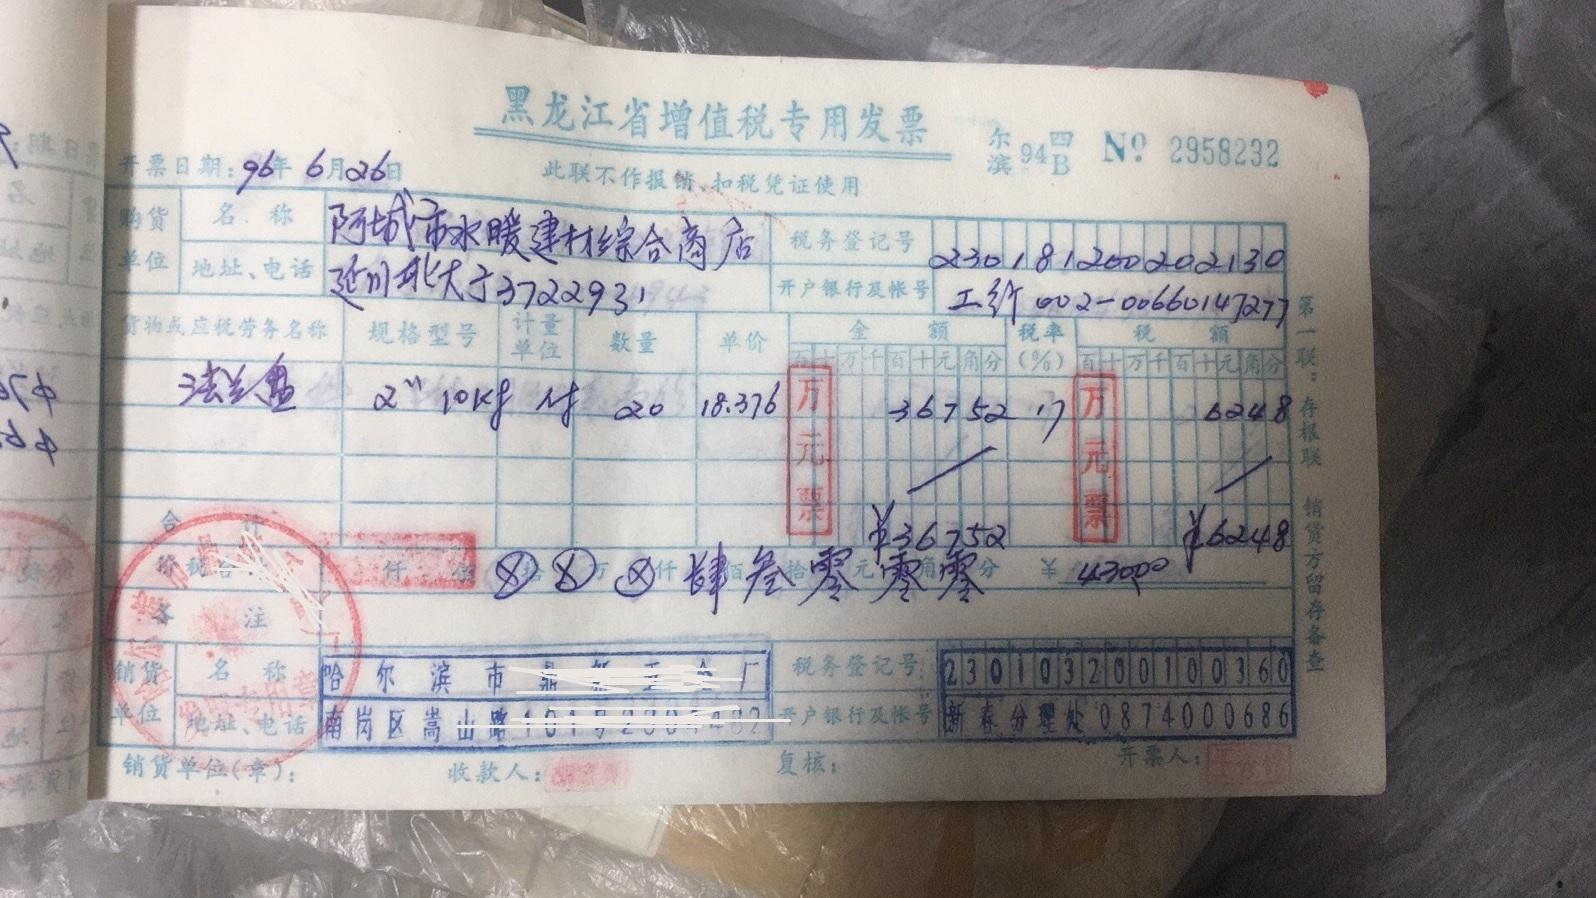 黑龙江省增值税专用发票
尔滨 94 四B № 2958232
开票日期: 96年 6月26日 此联不作报销、扣税凭证使用
购货单位 名称 阿城市水暖建材综合商店 税务登记号 230181200202130
地址、电话 延川北大于3722931 开户银行及帐号 工行 002-00660147277
货物或应税劳务名称 规格型号 计量单位 数量 单价 金额 税率(%) 税额
百十万千百十元角分 百十万千百十元角分
法兰盘 2" 10kg 付 20 18.376 36752 17 6248
万元票 万元票
合计 ¥36752 ¥6248
价税合 仟 佰 ⊗拾 ⊗万 ⊗仟 肆佰 叁拾 零元 零角 零分 ¥ 43000
备注
销货单位 名称 哈尔滨市 厂 税务登记号: 230103200100360
地址、电话 南岗区嵩山路 开户银行及帐号 新春分理处0874000686
销货单位(章): 收款人: 复核: 开票人:
第一联:存根联 销货方留存备查